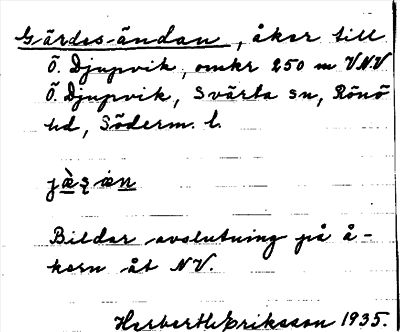 Gärdes-ändan, åker till
Ö. Djupvik, omkr 250 m VNV
Ö. Djupvik, Svärta sn, Rönö
hd, Söderm. l.
Bildar avslutning på å-
kern åt NV.
Herbert Eriksson 1935.